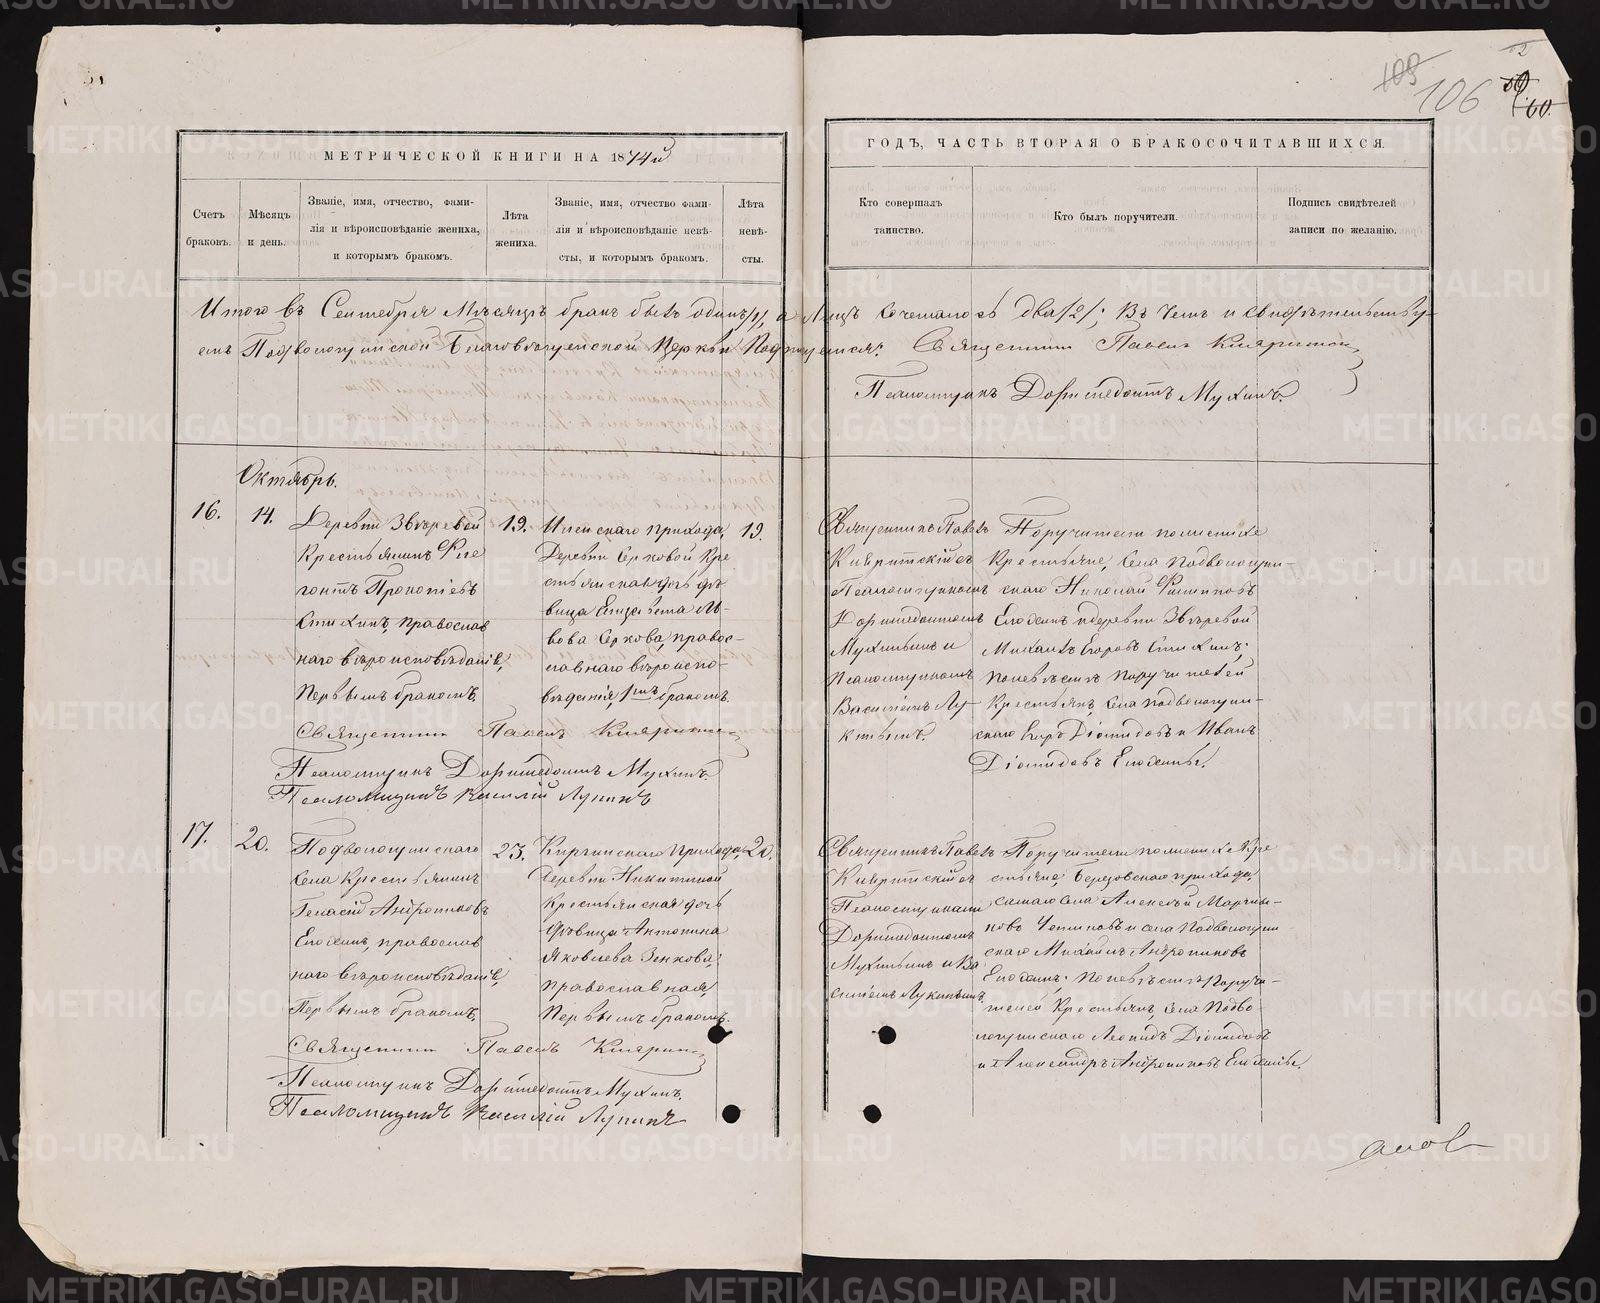 106
60.
МЕТРИЧЕСКОЙ КНИГИ НА 1874й
ГОДЪ, ЧАСТЬ ВТОРАЯ О БРАКОСОЧИТАВШИХСЯ.
Счетъ браковъ.
Мѣсяцъ и день.
Званіе, имя, отчество, фами-
лія и вѣроисповѣданіе жениха,
и которымъ бракомъ.
Лѣта жениха.
Званіе, имя, отчество фами-
лія и вѣроисповѣданіе невѣ-
сты, и которымъ бракомъ.
Лѣта невѣ-
сты.
Кто совершалъ
таинство.
Кто былъ поручители.
Подпись свидѣтелей
записи по желанію.
Итого въ Сентябрѣ Мѣсяцѣ бракъ былъ одинъ /1/, а Лицъ сочеталось два /2/; Въ чемъ и свидѣтельству-
емъ Подволошинской Благовѣщенской Церкви Подпишемся: Священникъ Павелъ
Псаломщикъ Доримедонтъ Мухинъ.
Октябрь.
16.
14.
Деревни Звѣревой
Крестьянинъ Фле
гонтъ Прокопіевъ
Стихинъ, православ
наго вѣроисповѣданія,
Первымъ бракомъ.
19.
прихода,
Деревни Серковой Кре
стьянская дочь дѣ
вица Елизавета Ль-
вова Серкова, правос-
лавнаго вѣроиспо-
вѣданія, 1мъ бракомъ.
19.
Священникъ Павелъ
Священникъ Павелъ
съ
Псаломщикомъ
Доримедонтомъ
Мухинымъ и
Псаломщикомъ
Василіемъ Лу-
кинымъ.
Поручители по женихѣ
Крестьяне, Села Подволошин-
скаго Николай Филиповъ
и деревни Звѣревой
Михаилъ Егоровъ Стихинъ;
по невѣстѣ Поручители
Крестьяне, Села Подволошин-
скаго Діомидовъ и Иванъ
Діомидовъ
Псаломщикъ Доримедонтъ Мухинъ
Псаломщикъ Василій Лукинъ
17.
20.
Подволошинскаго
Села Крестьянинъ
Андрониковъ
православ
наго вѣроисповѣданія,
Первымъ бракомъ.
23.
Киргинскаго Прихода,
Деревни Никитиной
Крестьянская дочь
дѣвица Антонина
Яковлева Зенкова,
православная,
Первымъ бракомъ.
20.
Священникъ Павелъ
Священникъ Павелъ
съ
Псаломщиками
Доримедонтомъ
Мухинымъ и Ва
силіемъ Лукинымъ.
Поручители по женихѣ Кре
стьяне, Березовскаго прихода,
самаго села Алексѣй Марты-
новъ и села Подволошин
скаго Михаилъ Андрониковъ
по невѣстѣ Поручи-
тели Крестьяне, Села Подво-
лошинскаго Леонидъ Діомидовъ
и Александръ Андрониковъ
Псаломщикъ Доримедонтъ Мухинъ.
Псаломщикъ Василій Лукинъ
METRIKI.GASO-URAL.RU